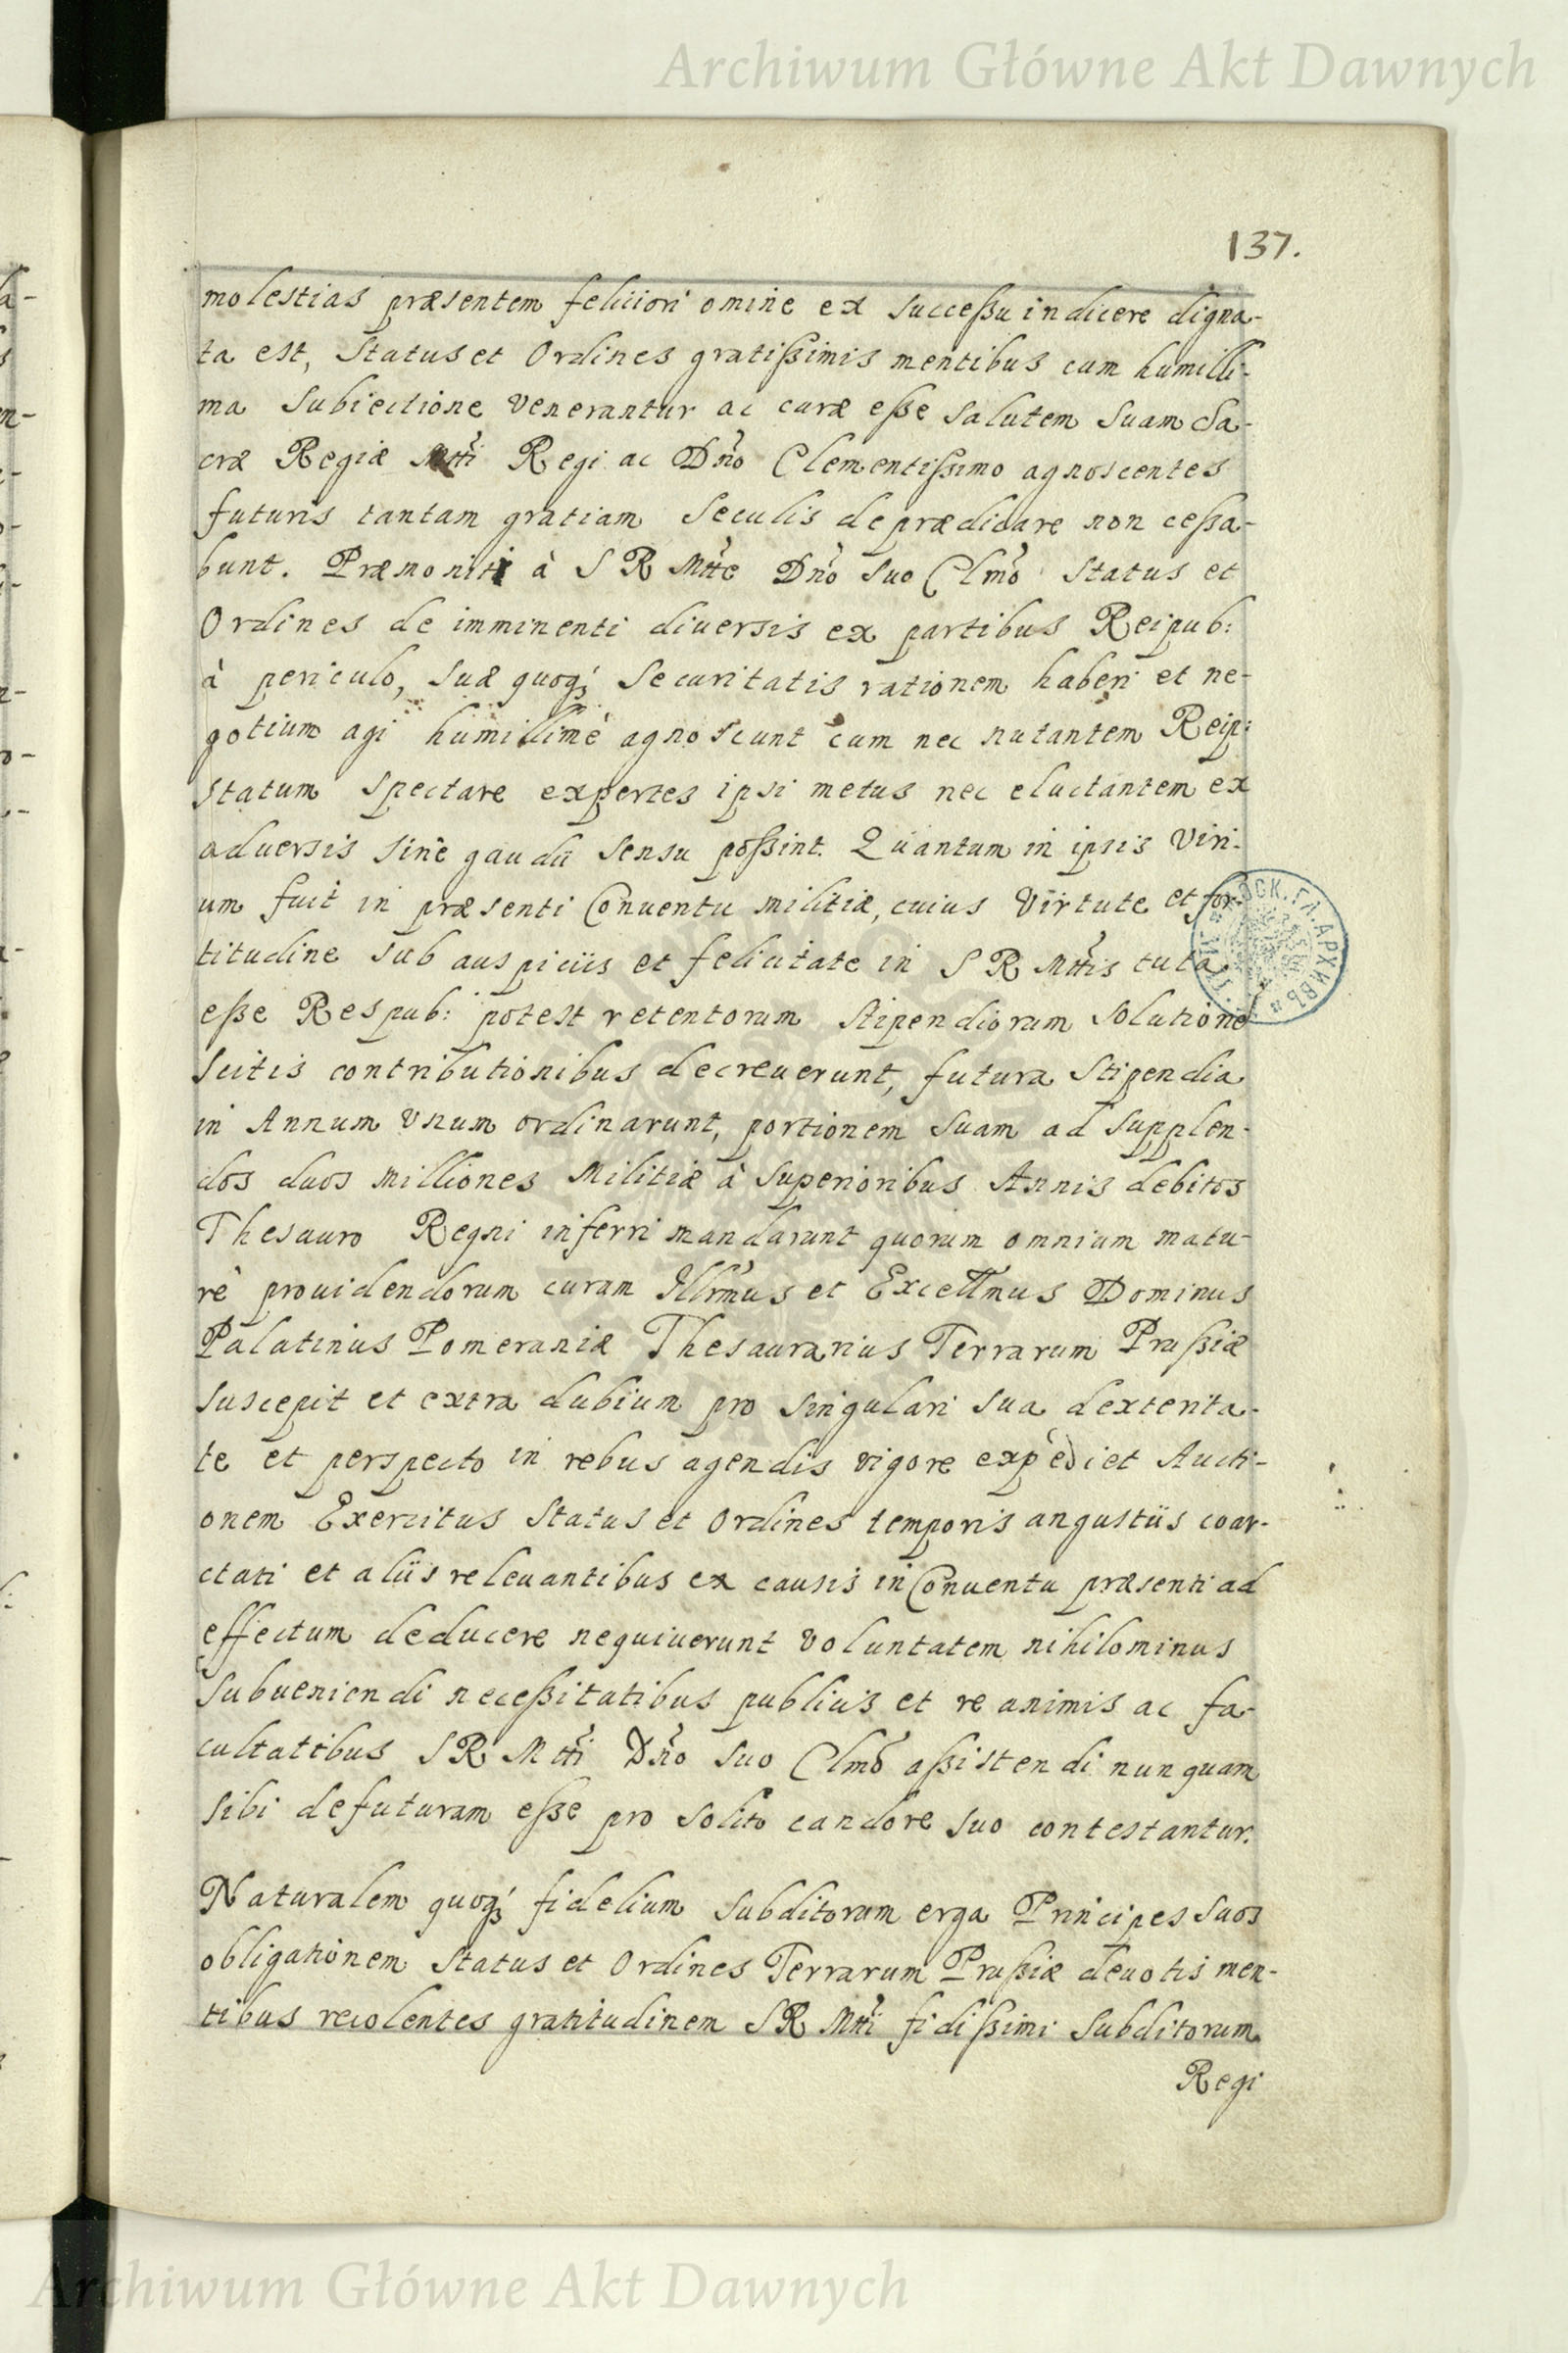 Archiwum Główne Akt Dawnych
137.
molestias præsentem feliciori omine ex successu indicere digna-
ta est, Status et Ordines gratissimis mentibus cum humilli-
ma subiectione venerantur ac curæ esse salutem suam Sa-
cræ Regiæ Mtti Regi ac Dno Clementissimo agnoscentes
futuris tantam gratiam seculis deprædicare non cessa-
bunt. Præmoniti à S R Mtte Dno suo Clmo Status et
Ordines de imminenti diuersis ex partibus Reipub:
à periculo, suæ quoq; securitatis rationem haberi et ne-
gotium agi humillimè agnoscunt cum nec nutantem Reip:
statum spectare expertes ipsi metus nec eluctantem ex
aduersis sine gaudii sensu possint. Quantum in ipsis viri-
um fuit in præsenti Conuentu militiæ, cuius virtute et for-
titudine sub auspiciis et felicitate in S R Mttis tuta
esse Respub: potest retentorum stipendiorum solutione
scitis contributionibus decreuerunt, futura stipendia
in Annum vnum ordinarunt, portionem suam ad supplen-
dos duos milliones Militiæ à superioribus Annis debitos
Thesauro Regni inferri mandarunt quorum omnium matu-
rè prouidendorum curam Illrmus et Excellmus Dominus
Palatinus Pomeraniæ Thesaurarius Terrarum Prussiæ
suscepit et extra dubium pro singulari sua dexterita-
te et perspecto in rebus agendis vigore expediet Aucti-
onem Exercitus Status et Ordines temporis angustiis coar-
ctati et aliis releuantibus ex causis in Conuentu præsenti ad
effectum deducere nequiuerunt voluntatem nihilominus
subueniendi necessitatibus publicis et re animis ac fa-
cultatibus S R Mtti Dno suo Clmo assistendi nunquam
sibi defuturam esse pro solito candore suo contestantur.
Naturalem quoq; fidelium subditorum erga Principes suos
obligationem Status et Ordines Terrarum Prussiæ deuotis men-
tibus recolentes gratitudinem S R Mtti fidissimi subditorum
Regi
Archiwum Główne Akt Dawnych